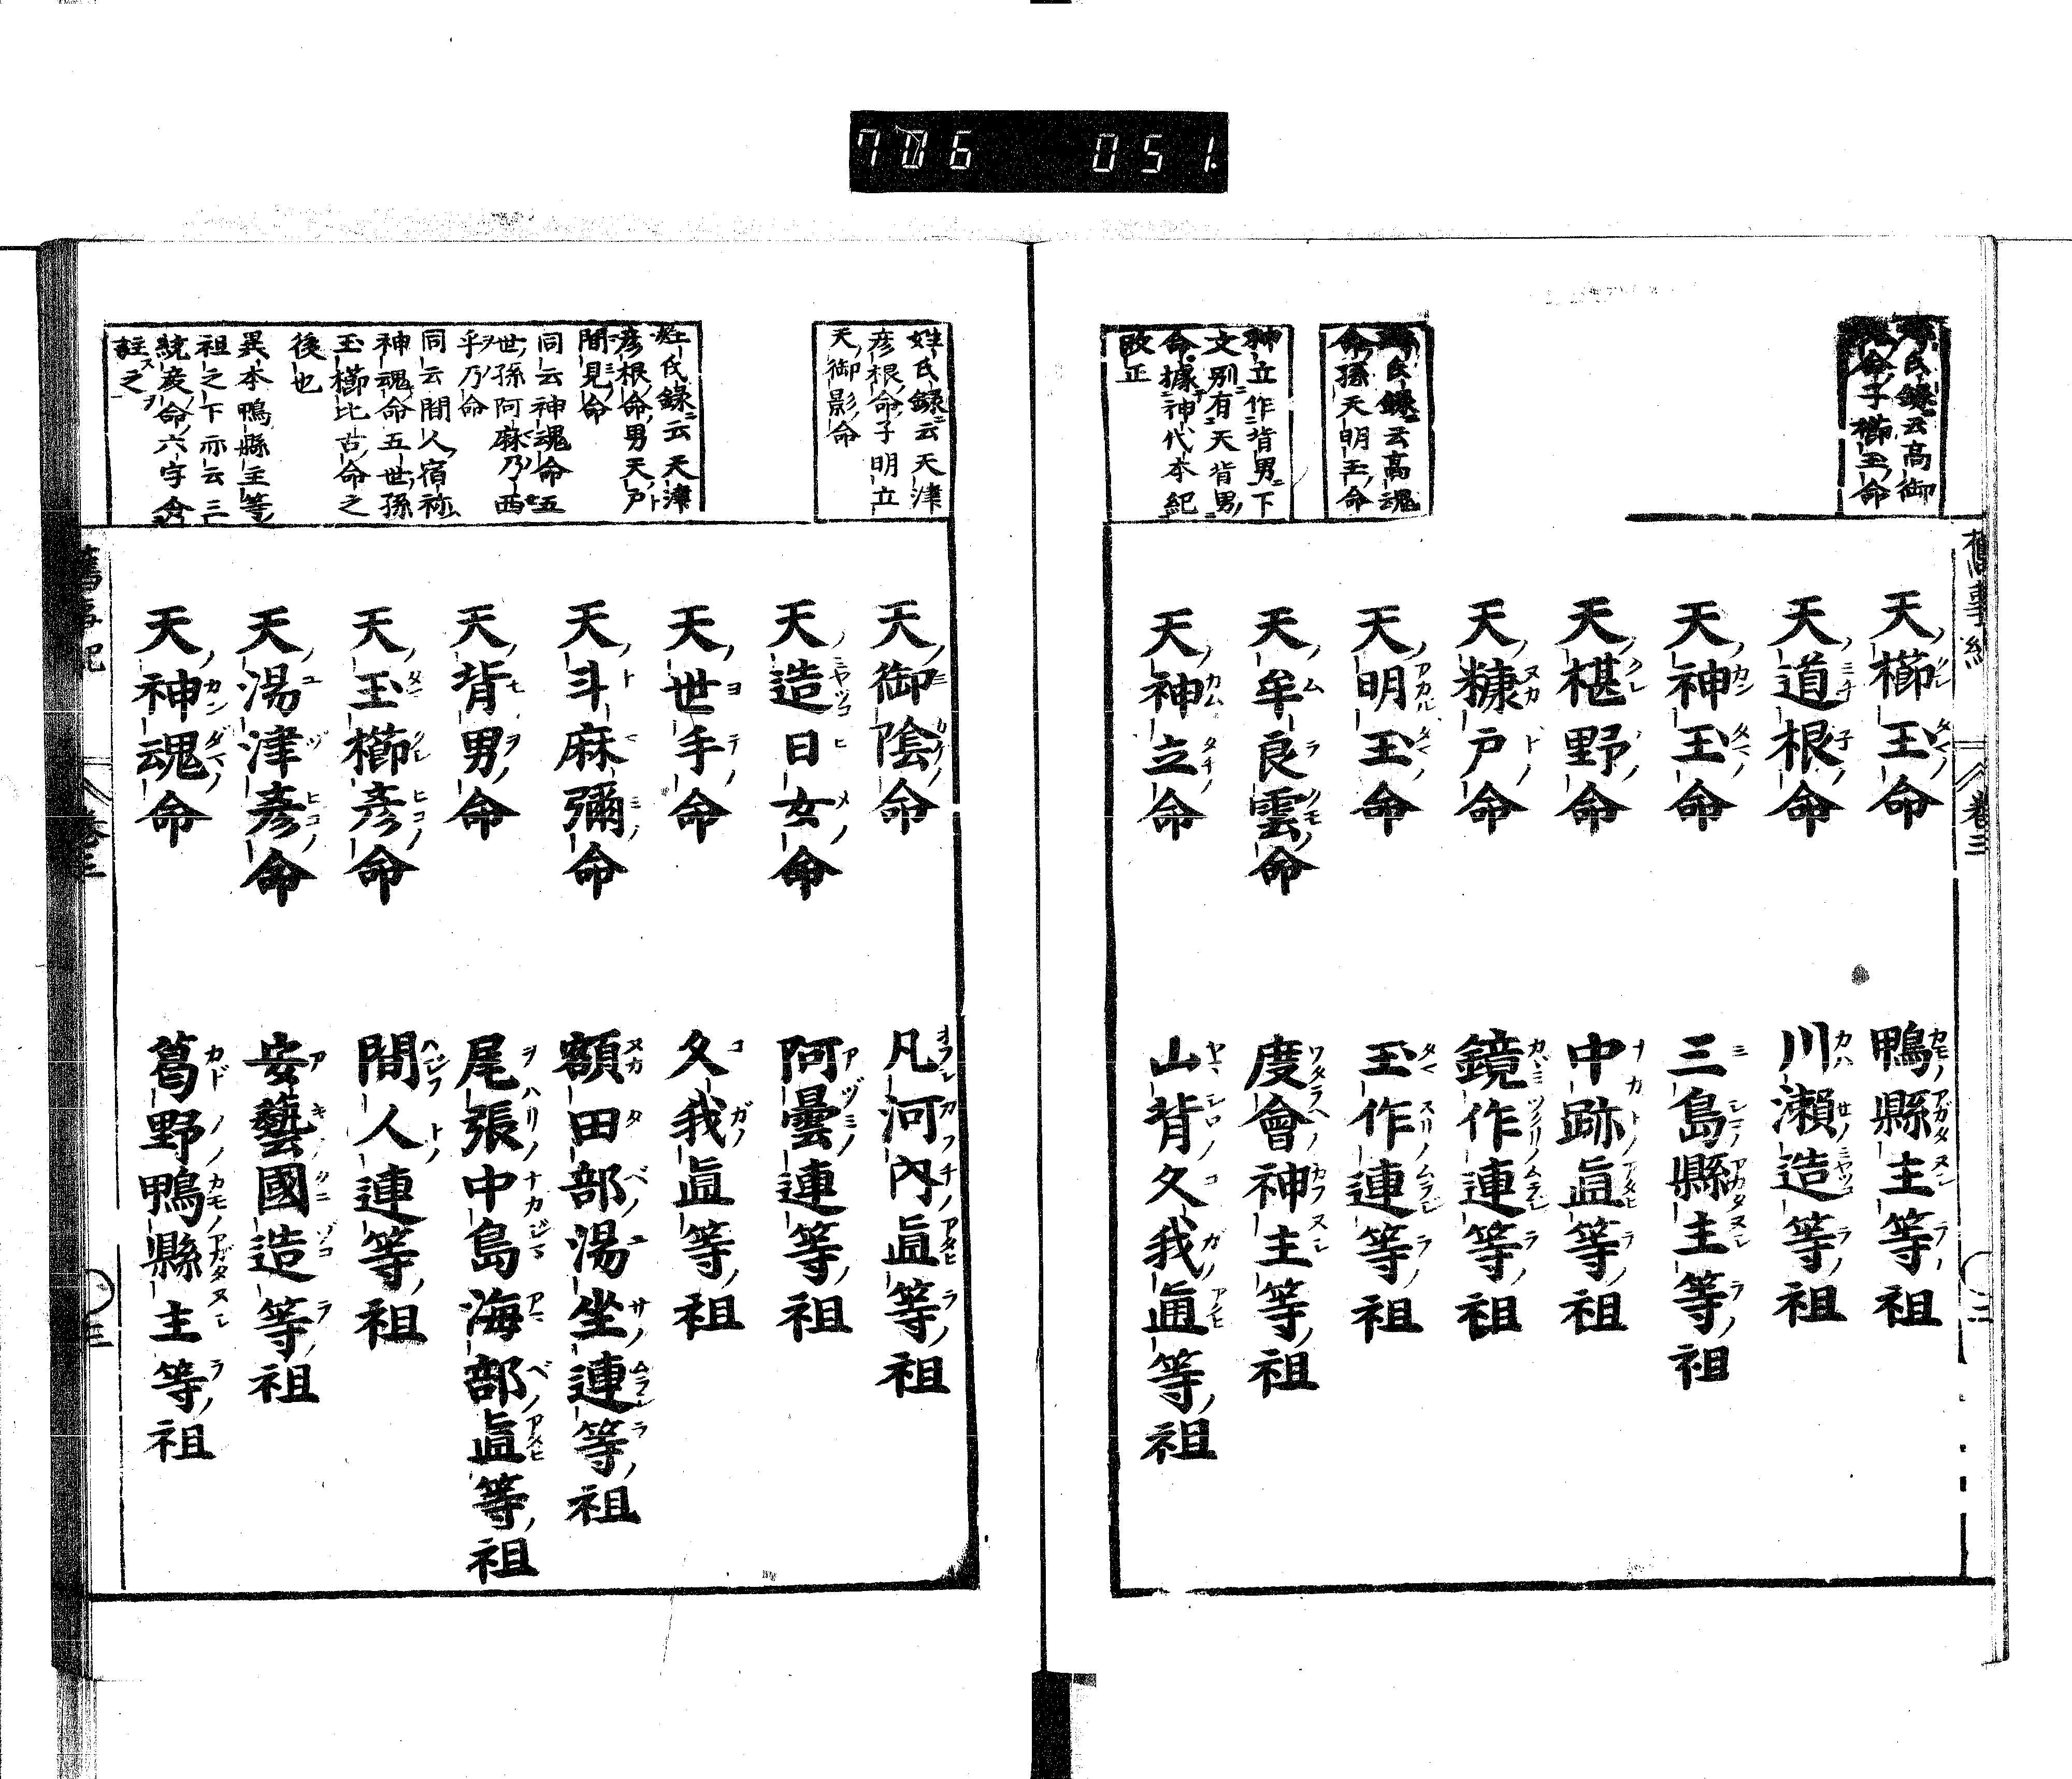 706 051
姓氏録云高御
魂命子櫛玉命
姓氏録云高魂
命孫天明玉命
神立作背男下
文別有天背男
命據神代本紀
改正
天櫛玉命 鴨縣主等祖
天道根命 川瀬造等祖
天神玉命 三島縣主等祖
天椹野命 中跡直等祖
天糠戸命 鏡作連等祖
天明玉命 玉作連等祖
天牟良雲命 度會神主等祖
天神立命 山背久我直等祖
姓氏録云天津
彦根命子明立
天御影命
姓氏録云天津
彦根命男天戸
間見命
同云神魂命五
世孫阿麻乃西
乎乃命
同云間人宿祢
神魂命五世孫
玉櫛比古命之
後也
異本鴨縣主等
祖之下亦云三
統彦命六字分
註之
天御陰命 凡河内直等祖
天造日女命 阿曇連等祖
天世手命 久我直等祖
天斗麻彌命 額田部湯坐連等祖
天背男命 尾張中島海部直等祖
天玉櫛彦命 間人連等祖
天湯津彦命 安藝國造等祖
天神魂命 葛野鴨縣主等祖
舊事紀 卷三 三